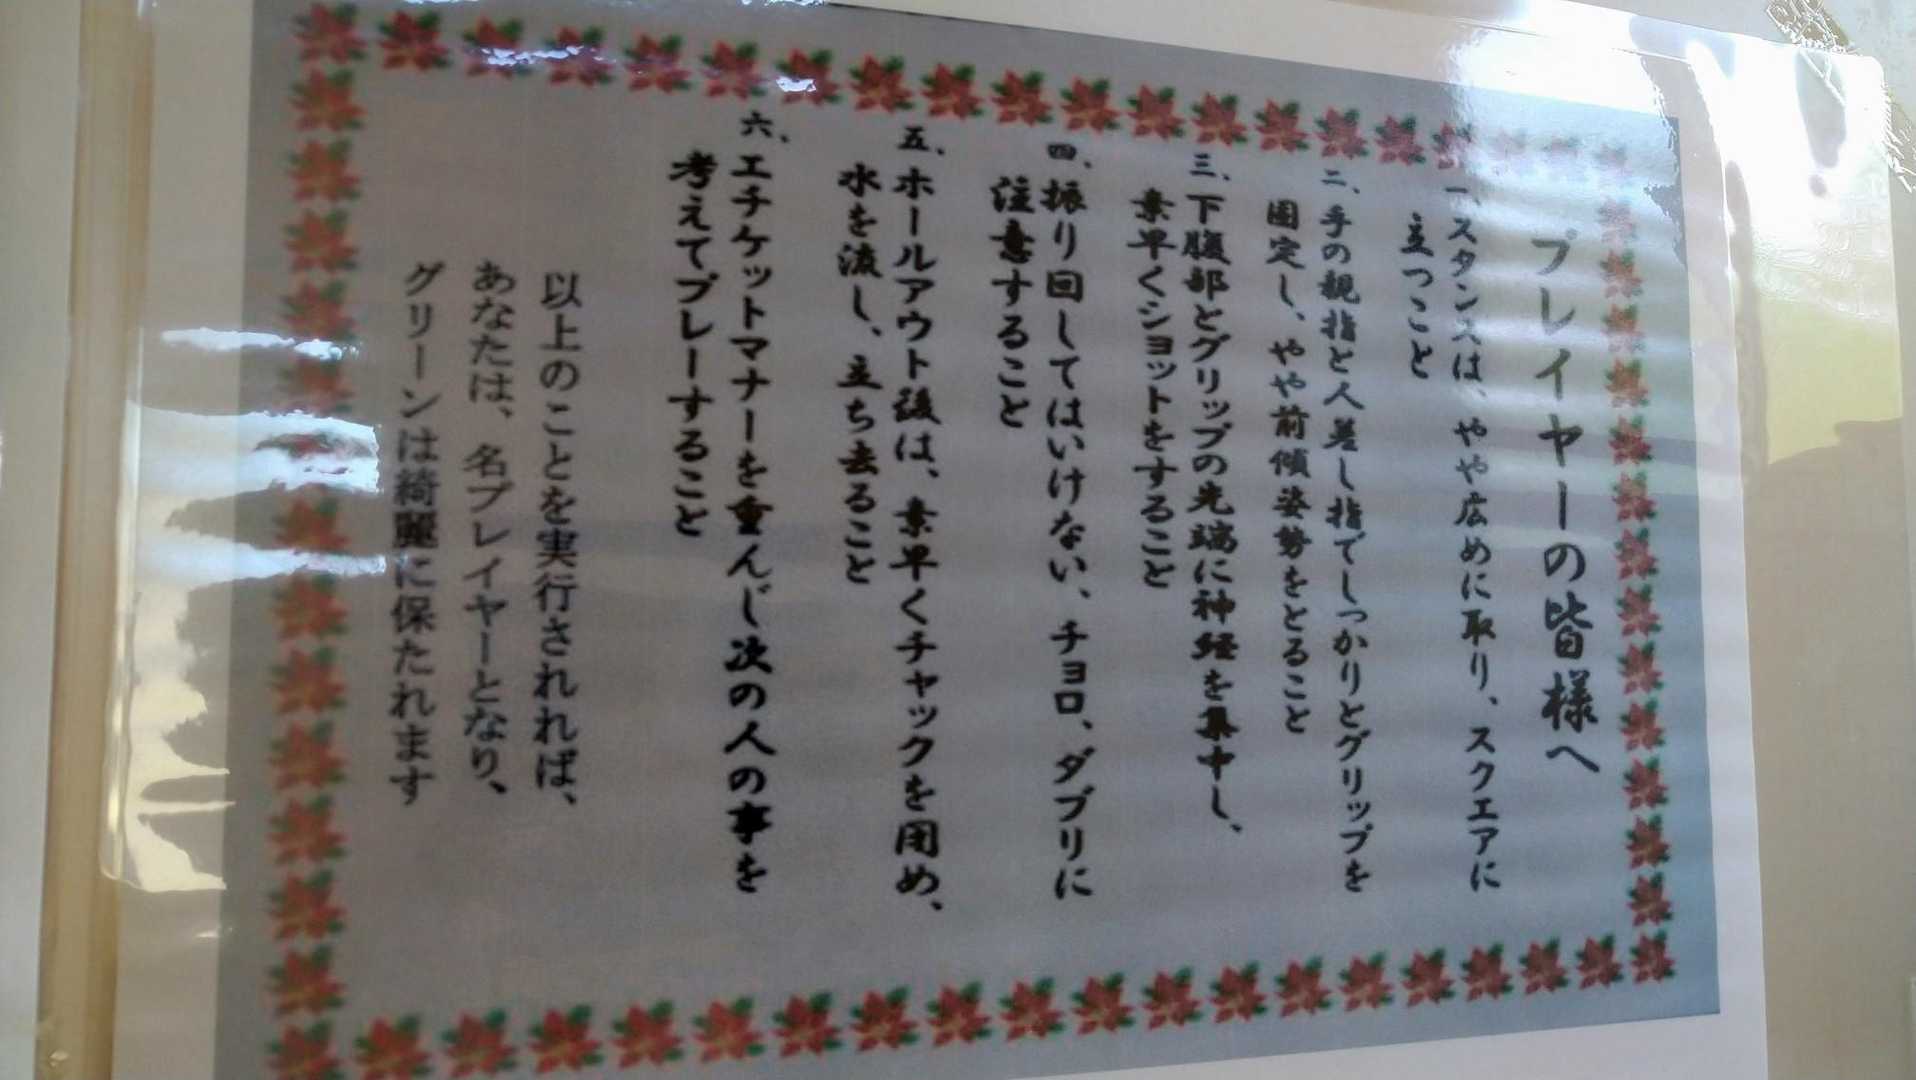 プレイヤーの皆様へ
一、スタンスは、やや広めに取り、スクエアに
立つこと
二、手の親指と人差し指でしっかりとグリップを
固定し、やや前傾姿勢をとること
三、下腹部とグリップの先端に神経を集中し、
素早くショットをすること
四、振り回してはいけない、チョロ、ダブリに
注意すること
五、ホールアウト後は、素早くチャックを閉め、
水を流し、立ち去ること
六、エチケットマナーを重んじ次の人の事を
考えてプレーすること
以上のことを実行されれば、
あなたは、名プレイヤーとなり、
グリーンは綺麗に保たれます